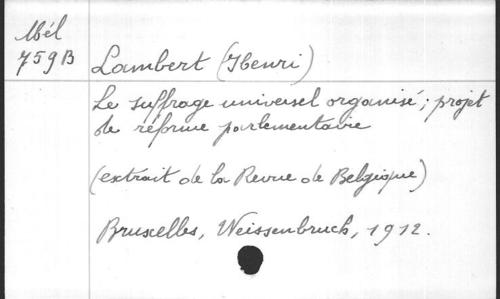 Mél
759B
Lambert (Henri)
Le suffrage universel organisé; projet
de réforme parlementaire
(extrait de la Revue de Belgique)
Bruxelles, Weissenbruch, 1912.